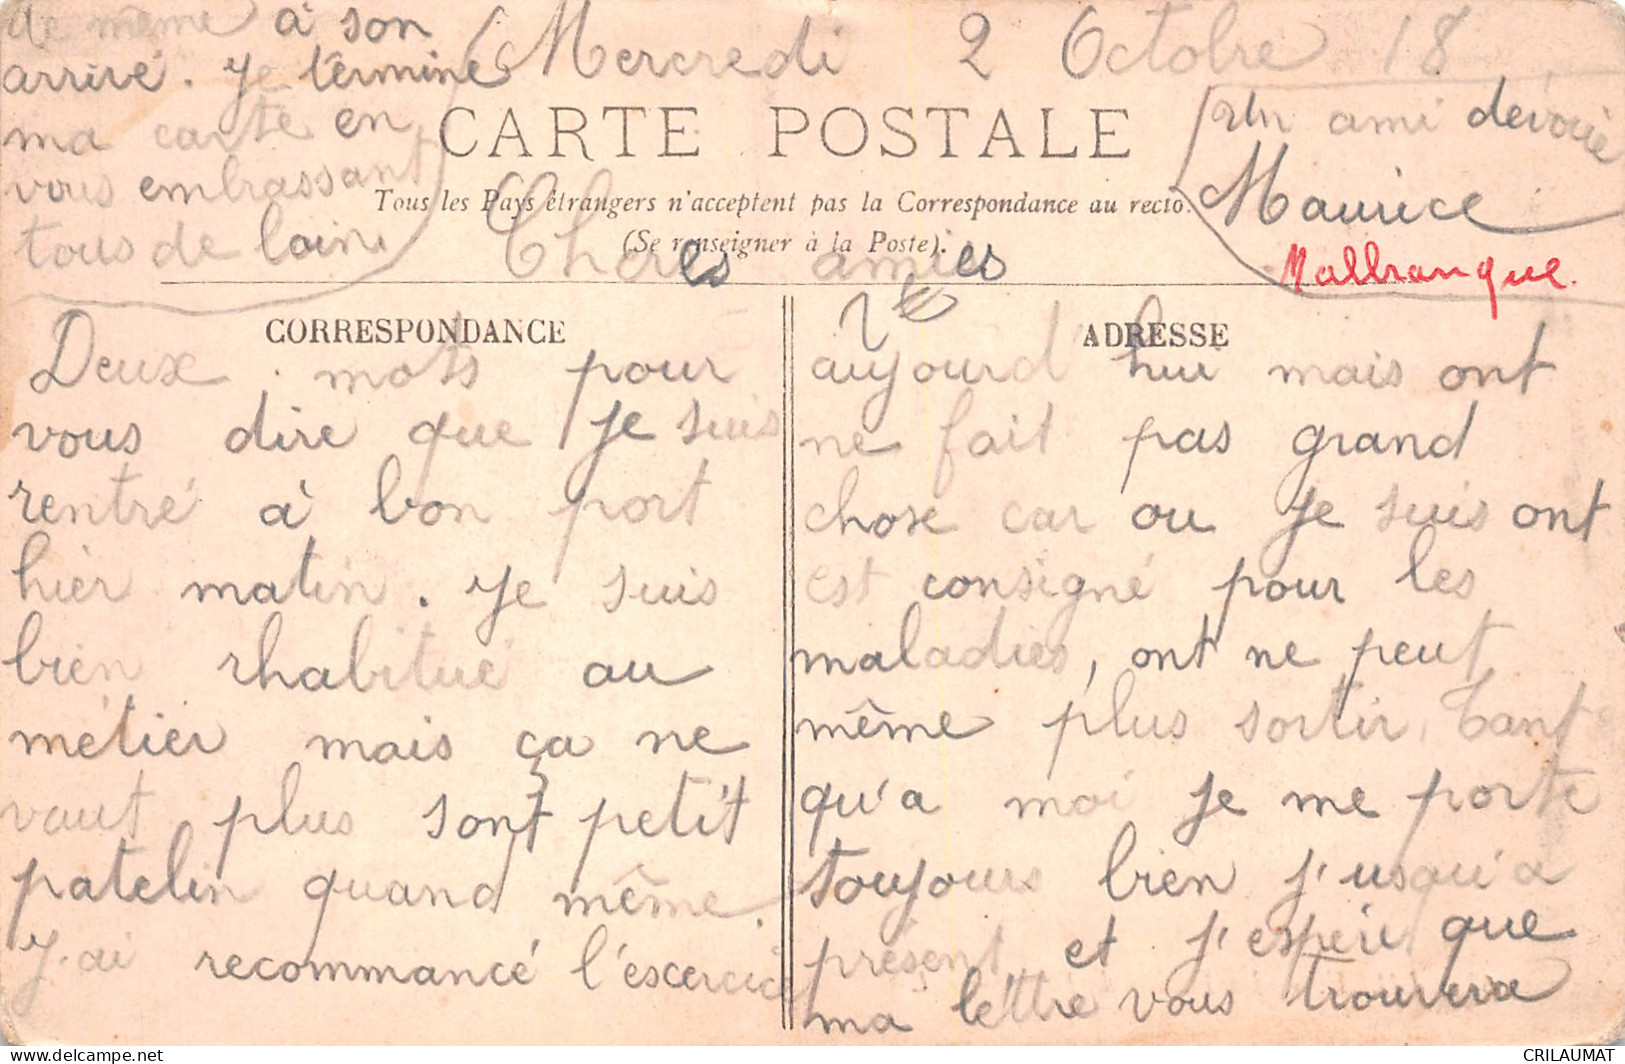 Mercredi 2 Octobre 18
CARTE POSTALE
Tous les Pays étrangers n'acceptent pas la Correspondance au recto.
(Se renseigner à la Poste).
Chères amies
CORRESPONDANCE
Deux mots pour
vous dire que je suis
rentré à bon port
hier matin. Je suis
bien rhabitué au
métier mais ça ne
vaut plus sont petit
patelin quand même.
J'ai recommancé l'escercice
ADRESSE
2€
aujourd hui mais ont
ne fait pas grand
chose car ou je suis ont
est consigné pour les
maladies, ont ne peut
même plus sortir. Tant
qu'a moi je me porte
toujours bien j'usqu'a
présent et j'espère que
ma lettre vous trouvera
de même à son
arrivé. Je termine
ma carte en
vous embrassant
tous de loin
Un ami dévoué
Maurice
Malbranque.
CRILAUMAT